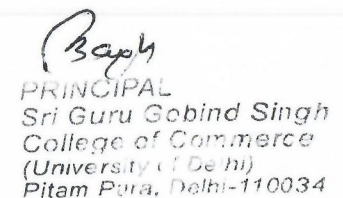 PRINCIPAL
Sri Guru Gobind Singh
College of Commerce
(University of Delhi)
Pitam Pura, Delhi-110034